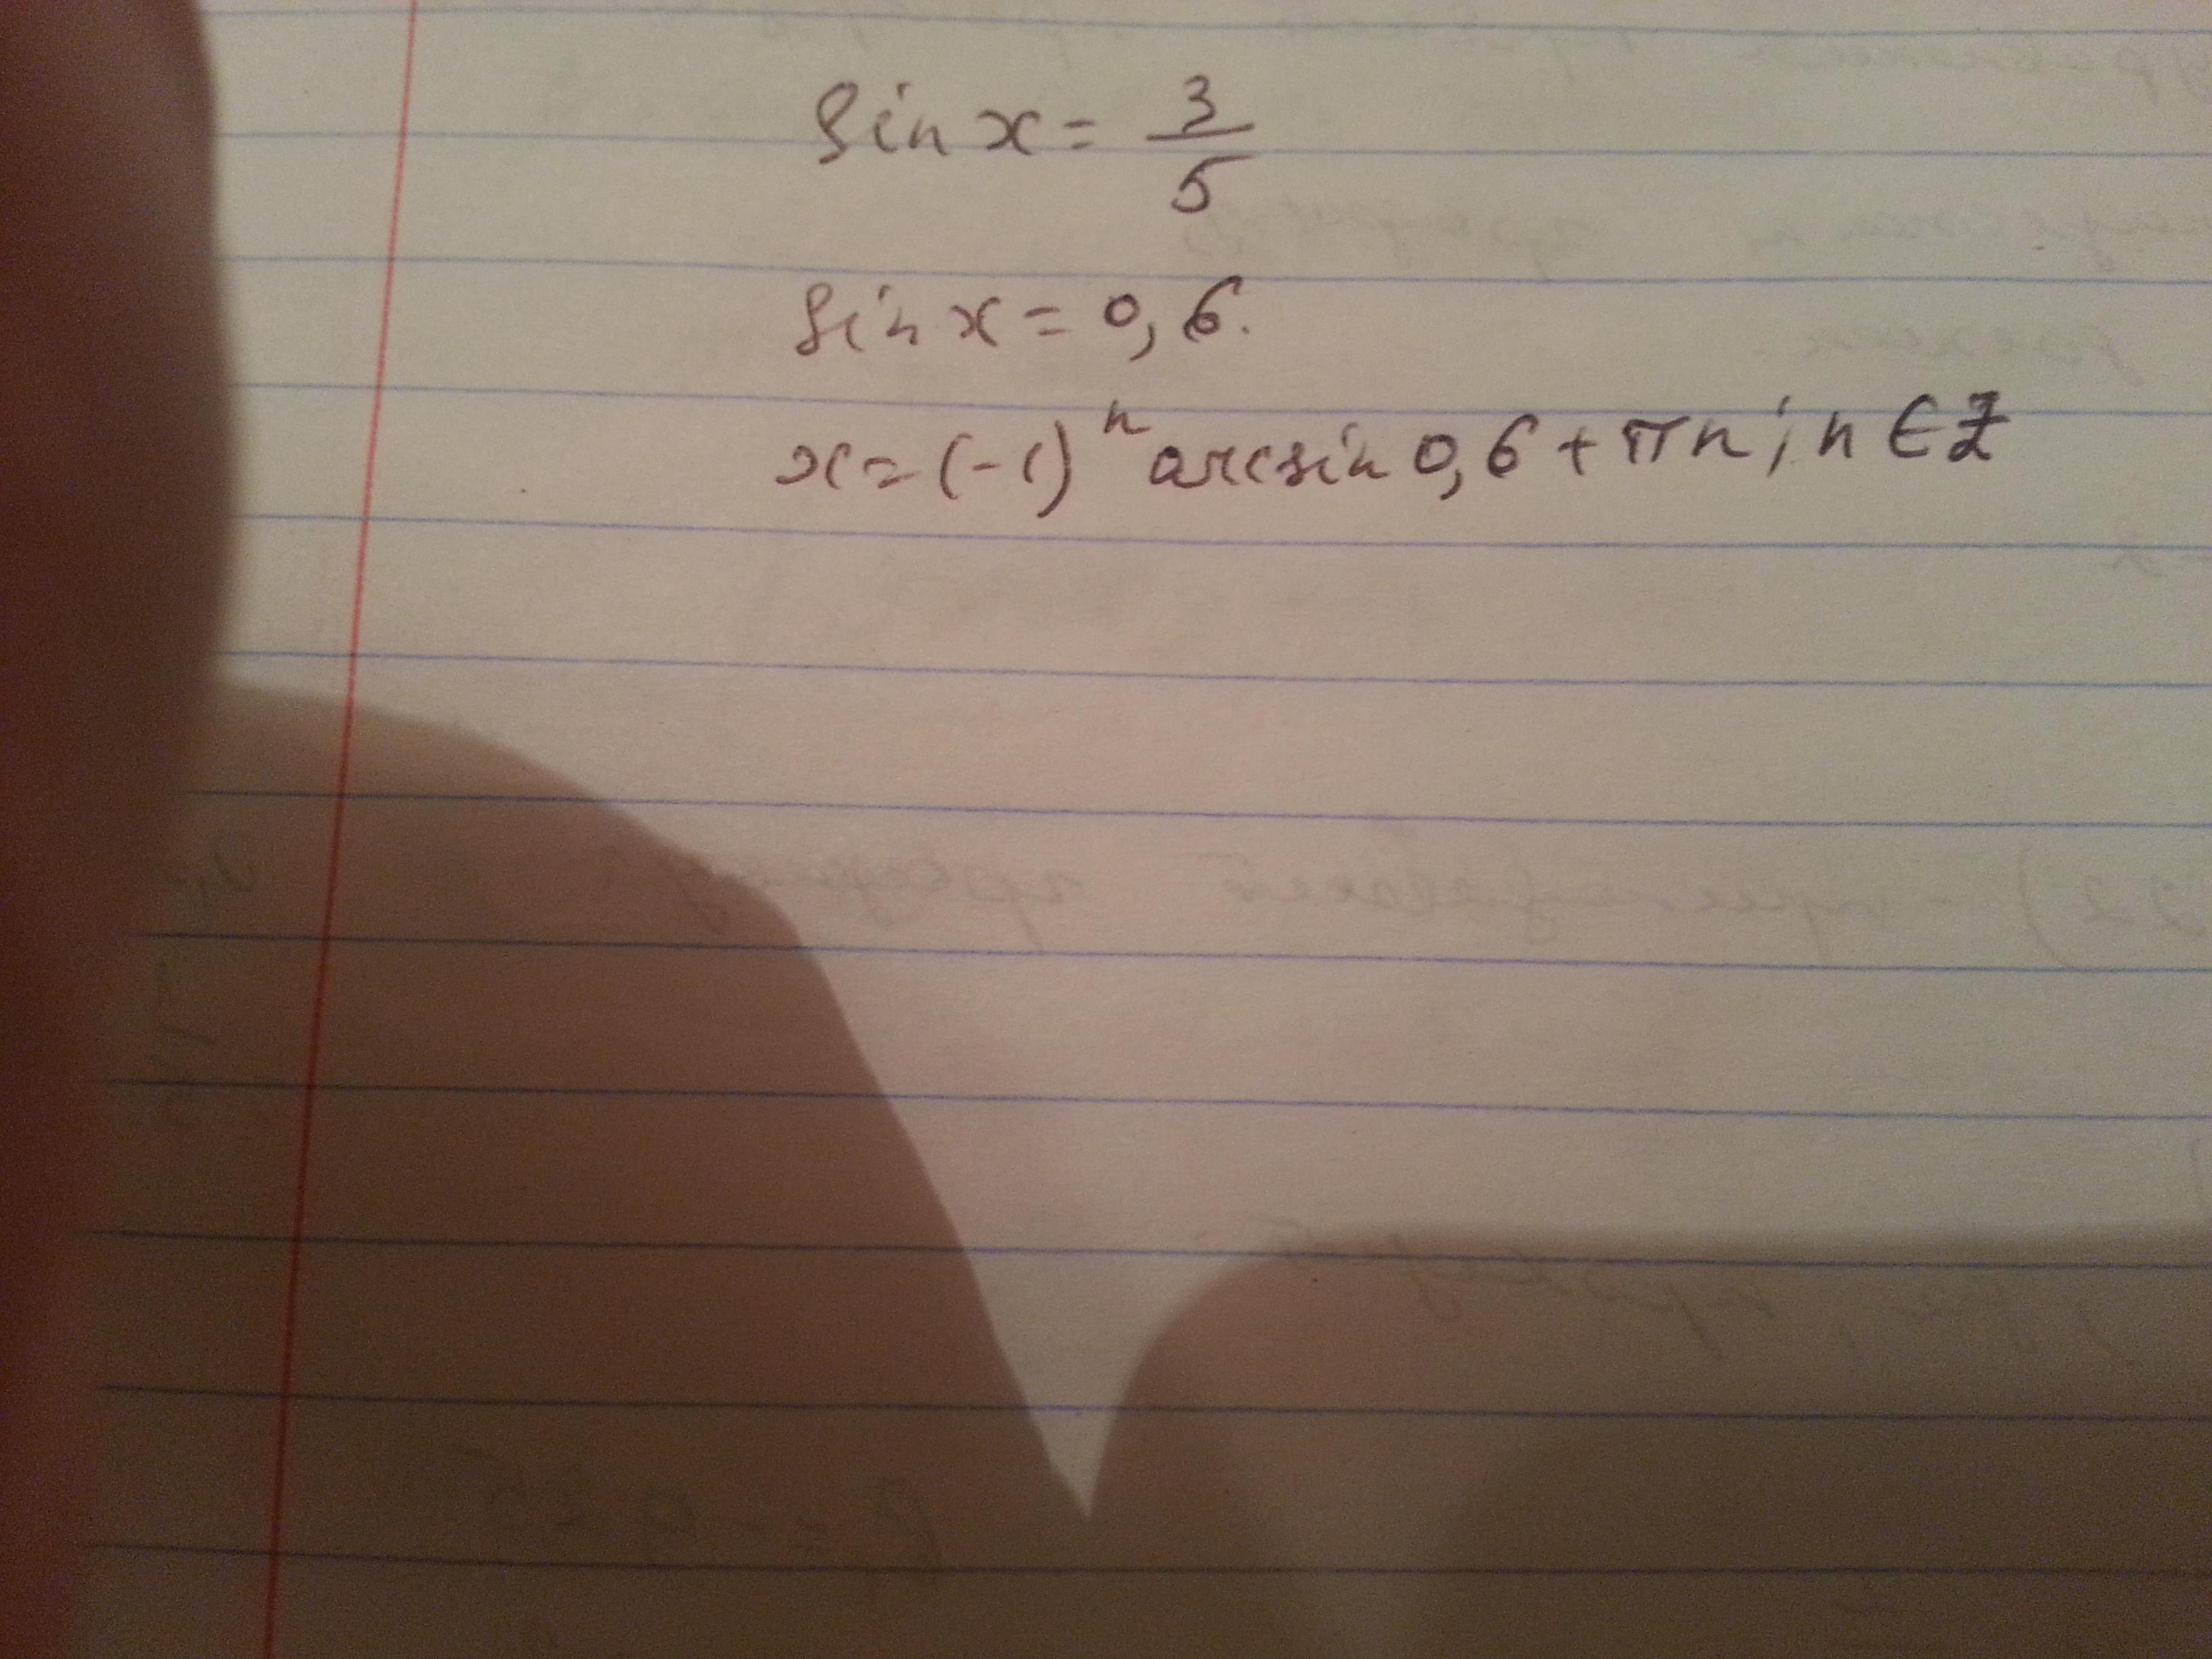 sin x = 3/5
sin x = 0,6.
x = (-1)^n arcsin 0,6 + πn; n ∈ Z